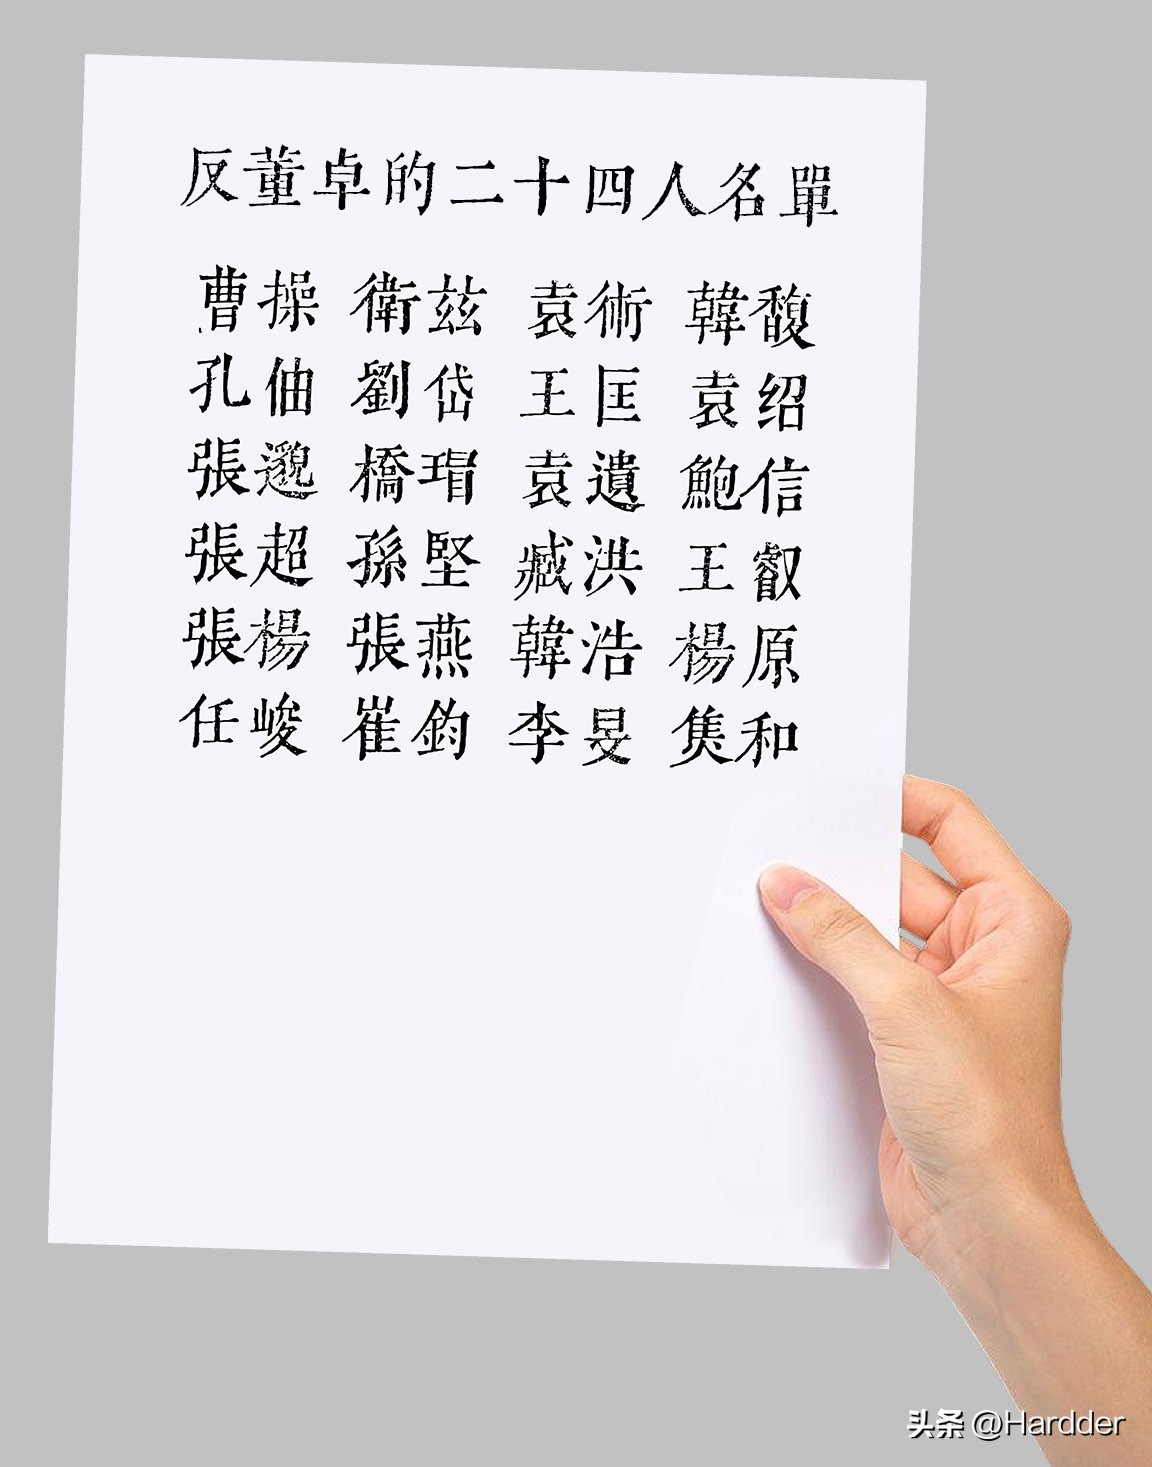 反董卓的二十四人名單
曹操 衛茲 袁術 韓馥
孔伷 劉岱 王匡 袁绍
張邈 橋瑁 袁遺 鮑信
張超 孫堅 臧洪 王叡
張楊 張燕 韓浩 楊原
任峻 崔鈞 李旻 隽和
头条 @Hardder